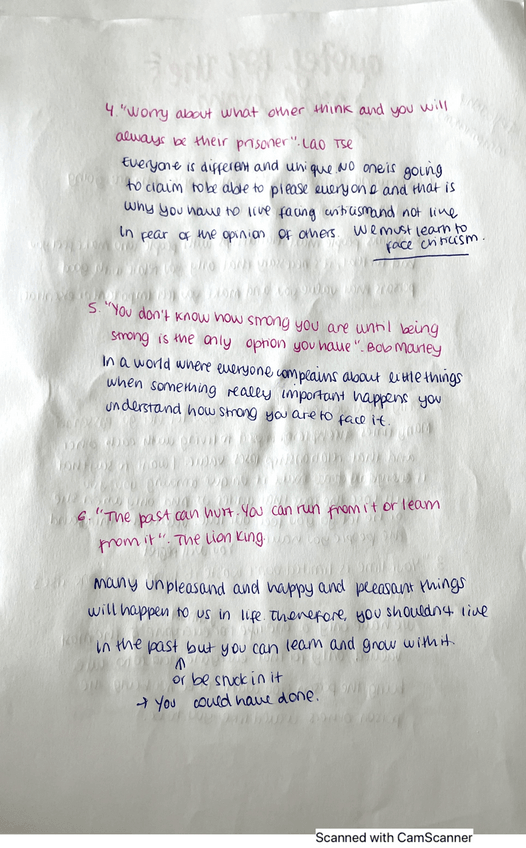 4. "Worry about what other think and you will
always be their prisoner". LAO TSE
Everyone is different and unique. NO one is going
to claim to be able to please everyone and that is
why you have to live facing criticism and not live
in fear of the opinion of others. We must learn to
face criticism.
5. "You don't know how strong you are until being
strong is the only option you have". Bob Marley
In a world where everyone complains about little things
when something really important happens you
understand how strong you are to face it.
6. "The past can hurt. You can run from it or learn
from it". The Lion King.
Many unpleasand and happy and pleasant things
will happen to us in life. Therefore, you shouldn't live
in the past but you can learn and grow with it.
or be stuck in it
→ You could have done.
Scanned with CamScanner